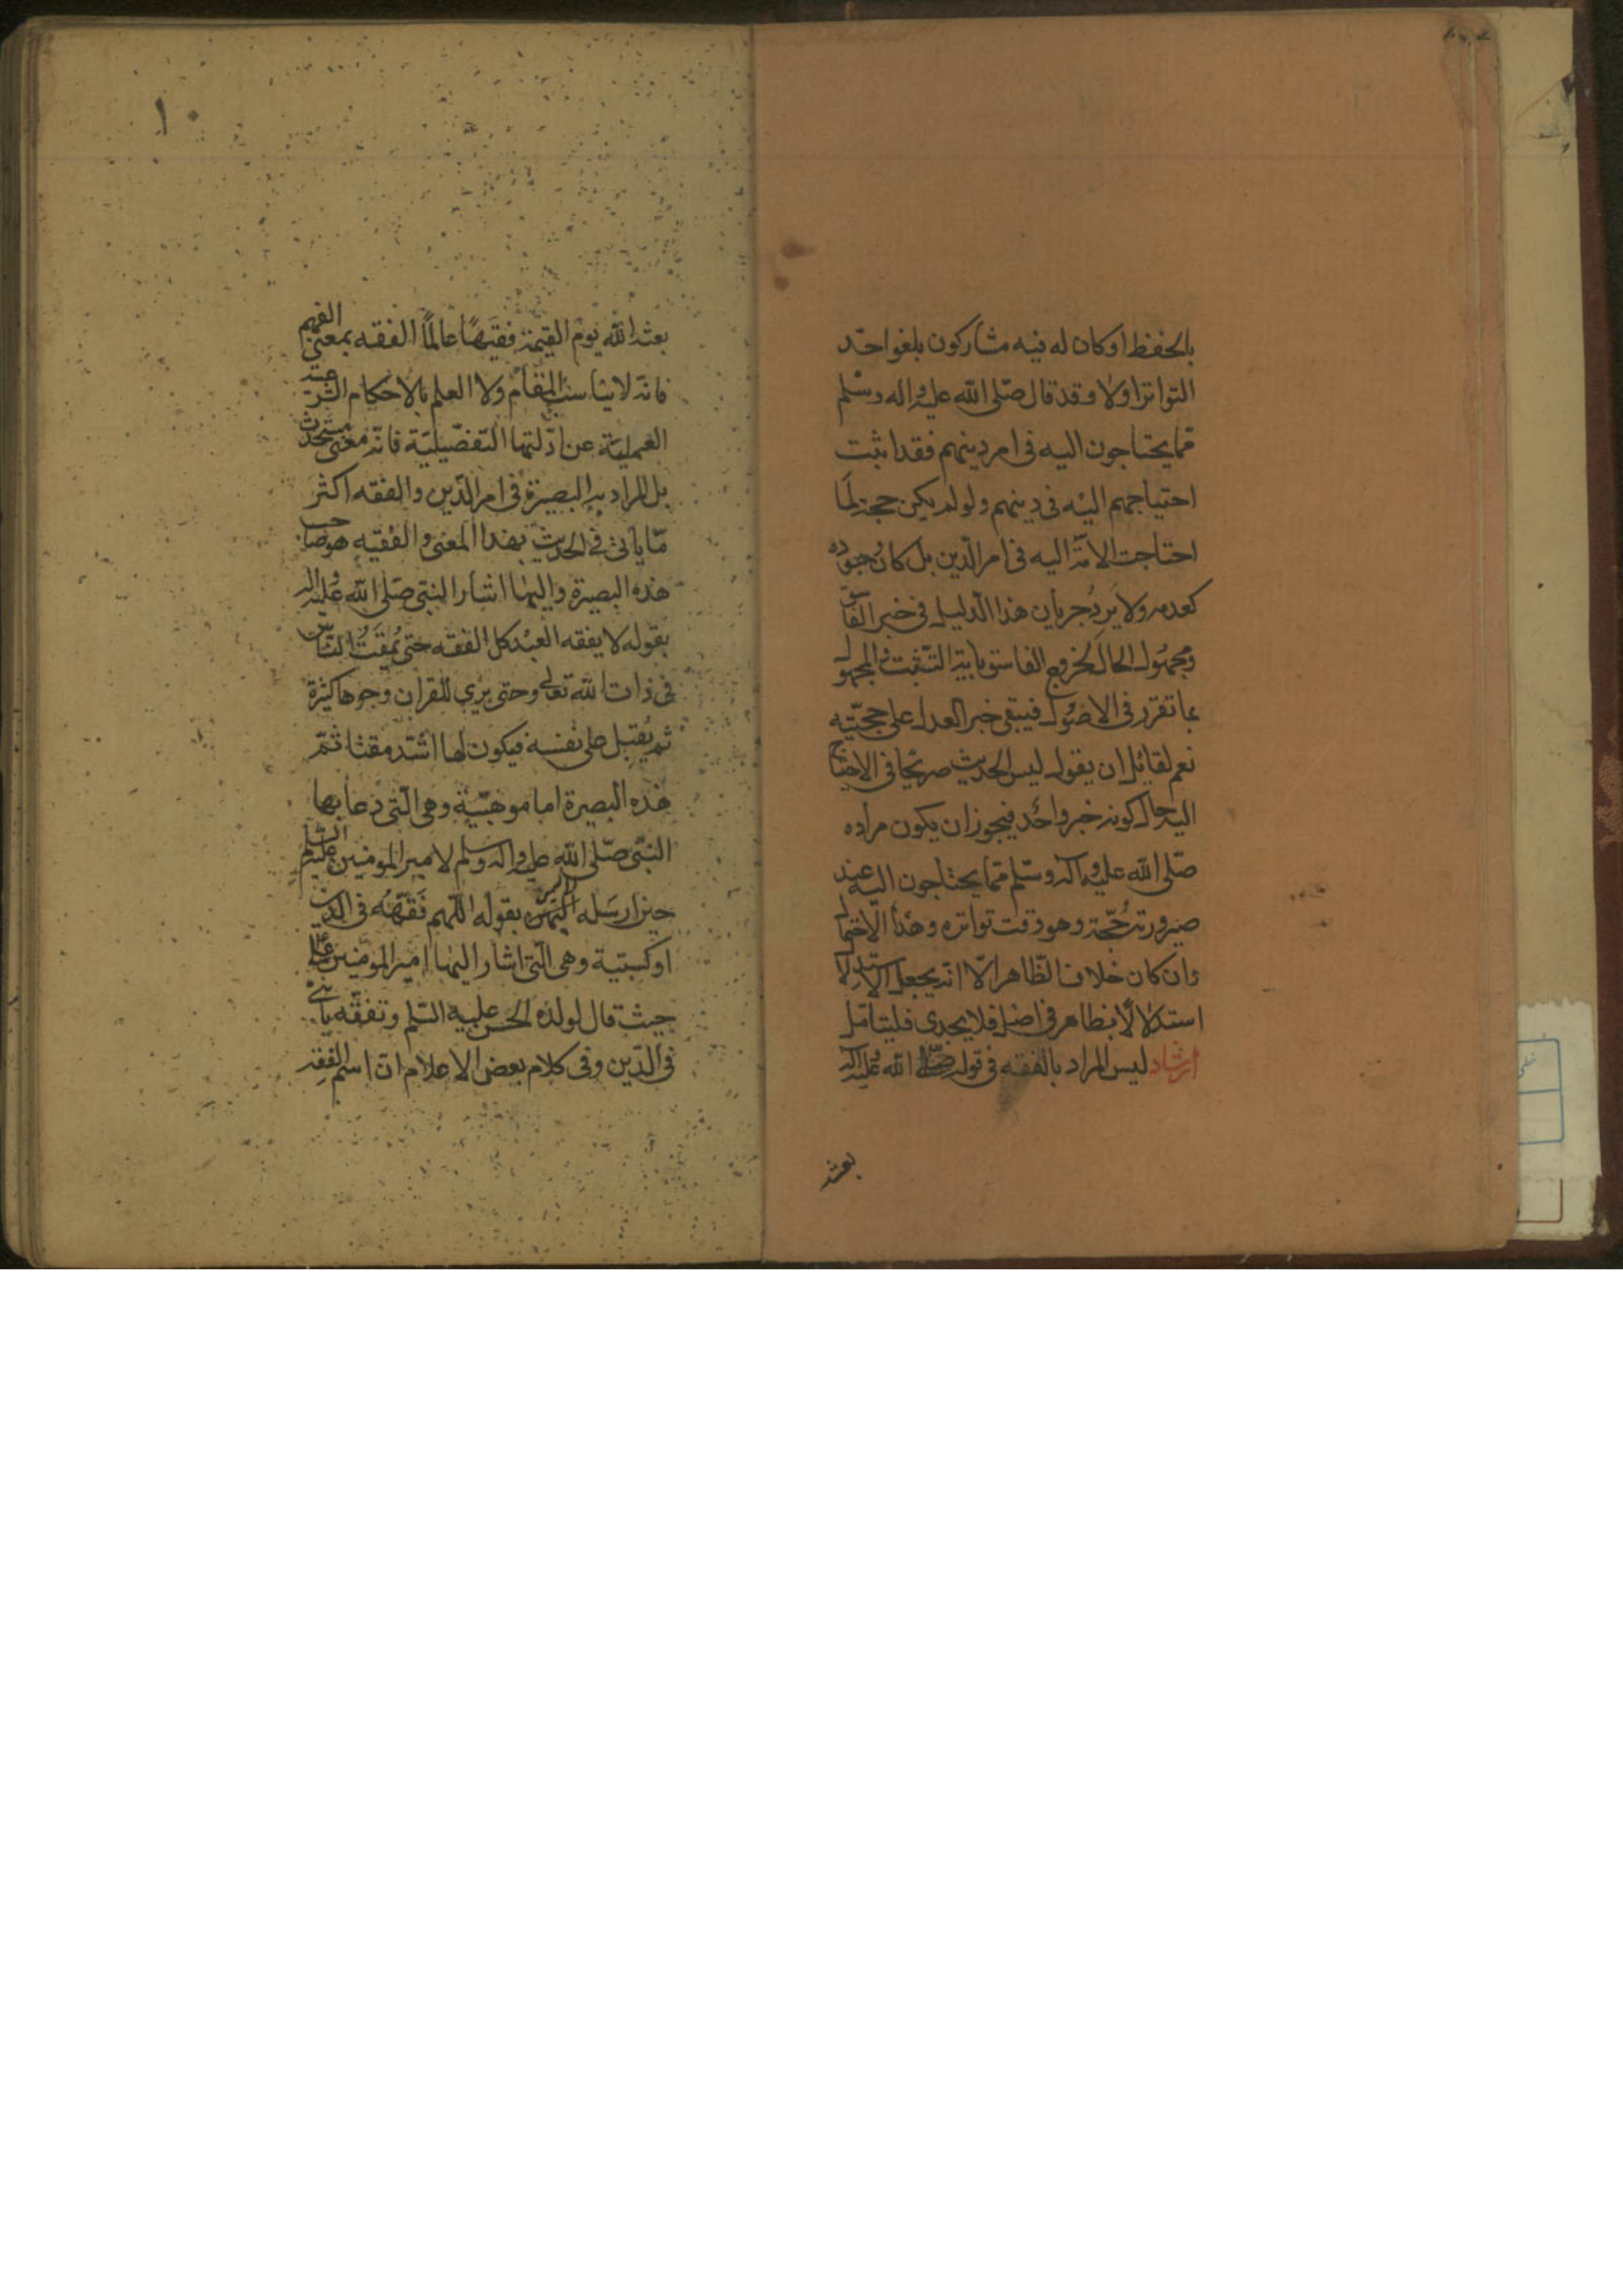 بالحفظ او كان له فيه مشاركون بلغوا حدّ
التواتر اولا وقد قال صلّى الله عليه واله وسلم
ممّا يحتاجون اليه فى امر دينهم فقد اثبت
احتياجهم اليه فى دينهم ولو لم يكن حجة لما
احتاجت الامّة اليه فى امر الدّين بل كان وجوده
كعدمه ولا يرد جريان هذا الدّليل فى خبر الفاسق
ومجهول الحال لخروج الفاسق باية التّثبت والمجهول
بما تقرر فى الاصول فيبقى خبر العدل على حجيّته
نعم لقائل ان يقول ليس الحديث صريحا فى الاحتياج
اليه حال كونه خبر واحد فيجوز ان يكون مراده
صلّى الله عليه واله وسلّم ممّا يحتاجون اليه عند
صيرورته حجّة وهو وقت تواتره وهذا الاحتمال
وان كان خلاف الظّاهر الّا انّه يجعل الاستدلال
استدلالا بظاهر فى اصل فلا يجدى فليتامّل
ارشاد ليس المراد بالفقه فى قوله صلّى الله عليه واله
بعثه
١٠
بعثه الله يوم القيمة فقيهًا عالمًا الفقه بمعنى الفهم
فانّه لا يناسب المقام ولا العلم بالاحكام الشرعيّة
العمليّة عن ادّلتها التّفصيليّة فانّه معنى مستحدث
بل المراد به البصيرة فى امر الدّين والفقه اكثر
ممّا ياتى فى الحديث بهذا المعنى والفقيه هو صاحب
هذه البصيرة واليها اشار النبّى صلّى الله عليه واله
بقوله لا يفقه العبد كل الفقه حتى يمقت النّاس
فى ذات الله تعالى وحتى يرى للقران وجوها كثيرة
ثم يقبل على نفسه فيكون لها اشدّ مقتا ثمّ
هذه البصيرة اما موهبيّة وهى الّتى دعا بها
النبّى صلّى الله عليه واله وسلم لامير المومنين عليه السّلم
حين ارسله الى اليمن بقوله اللّهم فقّهه فى الدّين
او كسبيّة وهى الّتى اشار اليها امير المومنين ع
حيث قال لولده الحسن عليه السّلم وتفقّه يا بنى
فى الدّين وفى كلام بعض الاعلام انّ اسم الفقه